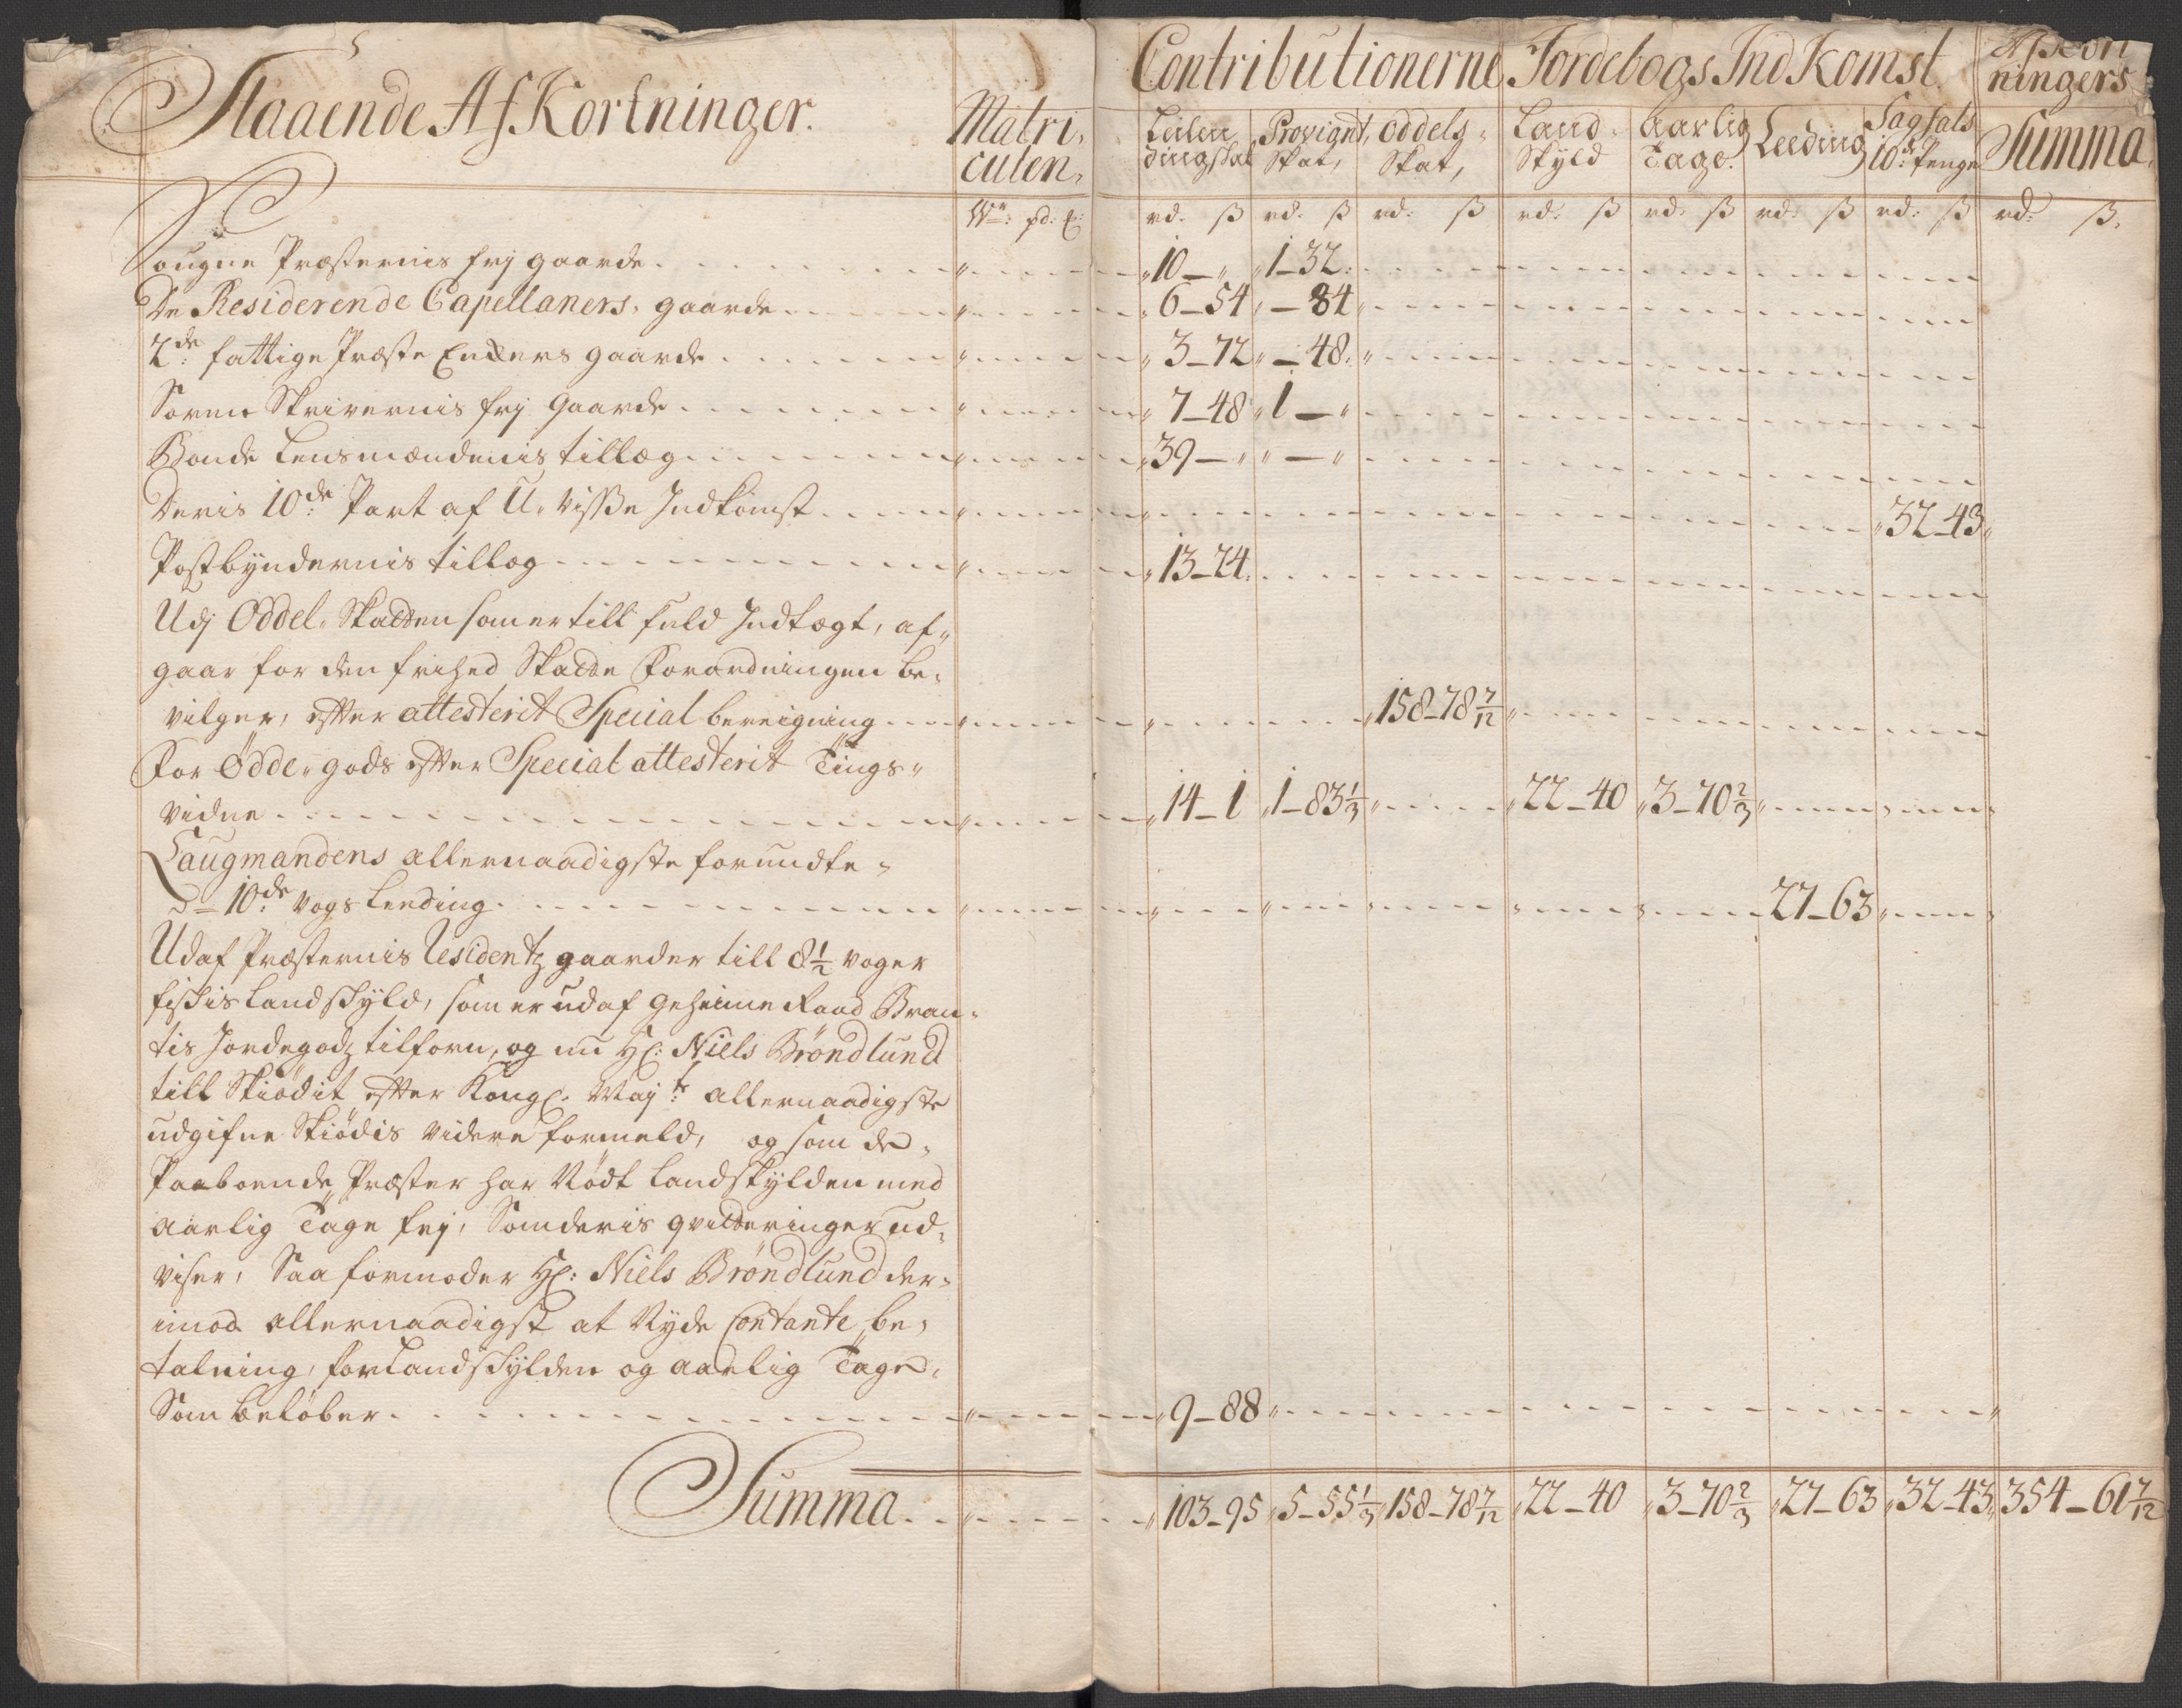 Staaende AfKortninger.
Matri-
culen,
Contributionerne
Jordebogs IndKomst
AfKort
ningers
Summa
Leilen
dingsskat
Proviant,
Skat,
Oddels-
Skat,
Land-
Skyld
Aarlig
Tage.
Leeding
Sagfals
10de Penge
Wr: pd: rd. ß rd. ß rd: ß rd: ß rd: ß rd: ß rd: ß rd: ß.
Sougne Præsternis frj gaarde . . . 10 – „ 1 – 32
De Residerende Capellaners, gaarde . . . 6 – 54 „ – 84
2de fattige Præste Enkers gaarde . . . 3 – 72 „ – 48
Soren Skrivernis frj Gaarde . . . 7 – 48 1 – „
Bonde Lensmændenis tillæg . . . 39 – „ „ – „
Deris 10de Part af U-visse Indkomst . . . 32 – 43
Postbyndernis tillæg . . . 13 – 24
Udj Oddel-Skatten som er till fuld Indtægt, af-
gaar for den frihed Skatte Forordningen be-
vilger, effter attesterit Special bereigning . . . 158 – 78 7/12
For Ødde-gods effter Special attesterit Tings-
vidne . . . 14 – 1 1 – 83 1/3 22 – 40 3 – 70 2/3
Laugmandens allernaadigste forundte
10de vogs Leeding . . . 27 – 63
Udaf Præsternis Residentz gaarder till 8 1/2 voger
fiskis Landskyld, som er udaf Geheime Raad Bran-
tis Jordegodz tilforn, og nu Hr: Niels Bröndlund
till Skiödit effter Kongl: Mayts allernaadigste
udgifne Skiödis videre formeld, og som de
Paaboende Præster har Nödt Landskylden med
aarlig Tage frj, Som deris qvitteringer ud-
viser, Saa formoder Hr: Niels Bröndlund der-
imod allernaadigst at Nyde Contante be-
talning, for Landskylden og aarlig Tage,
Som belöber . . . 9 – 88
Summa . . . 103 – 95 5 – 55 1/3 158 – 78 7/12 22 – 40 3 – 70 2/3 27 – 63 32 – 43 354 – 61 7/12